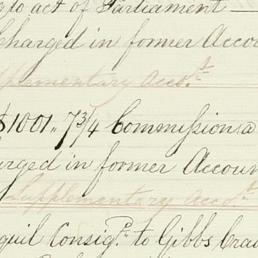 to act of Parliament
Charged in former Accou
Supplementary Acct.
$1001„ 7¾ Commission a
arged in former Accoun
Supplementary Acct.
quil Consigd. to Gibbs Craw